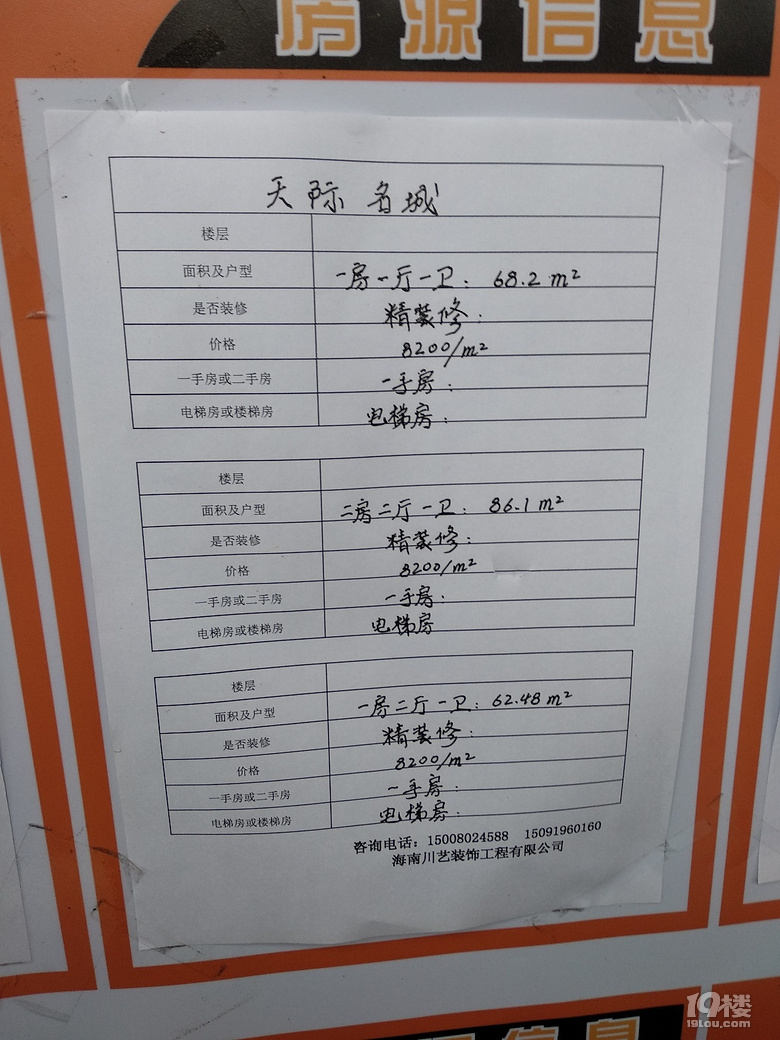 房源信息
天际名城
楼层
面积及户型 一房一厅一卫: 68.2 m²
是否装修 精装修:
价格 8200/m²
一手房或二手房 一手房:
电梯房或楼梯房 电梯房:
楼层
面积及户型 二房二厅一卫: 86.1 m²
是否装修 精装修:
价格 8200/m²
一手房或二手房 一手房:
电梯房或楼梯房 电梯房
楼层
面积及户型 一房二厅一卫: 62.48 m²
是否装修 精装修:
价格 8200/m²
一手房或二手房 一手房:
电梯房或楼梯房 电梯房:
咨询电话：15008024588 15091960160
海南川艺装饰工程有限公司
19楼
19lou.com
信息